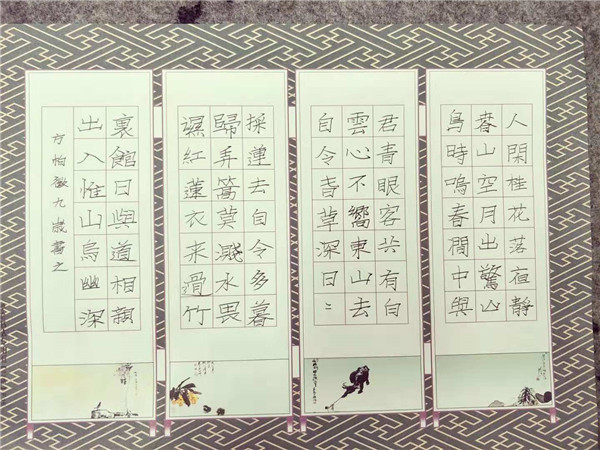 人閑桂花落夜靜
春山空月出驚山
鳥時鳴春澗中與
君青眼客共有白
雲心不嚮東山去
自令春草深日〻
採蓮去自令多暮
歸弄篙莫濺水畏
濕紅蓮衣来過竹
裏館日與道相親
出入惟山鳥幽深
方怡九歲書之